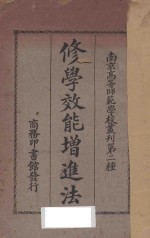 南京高等師範學校叢刊第二種
修學效能增進法
商務印書館發行